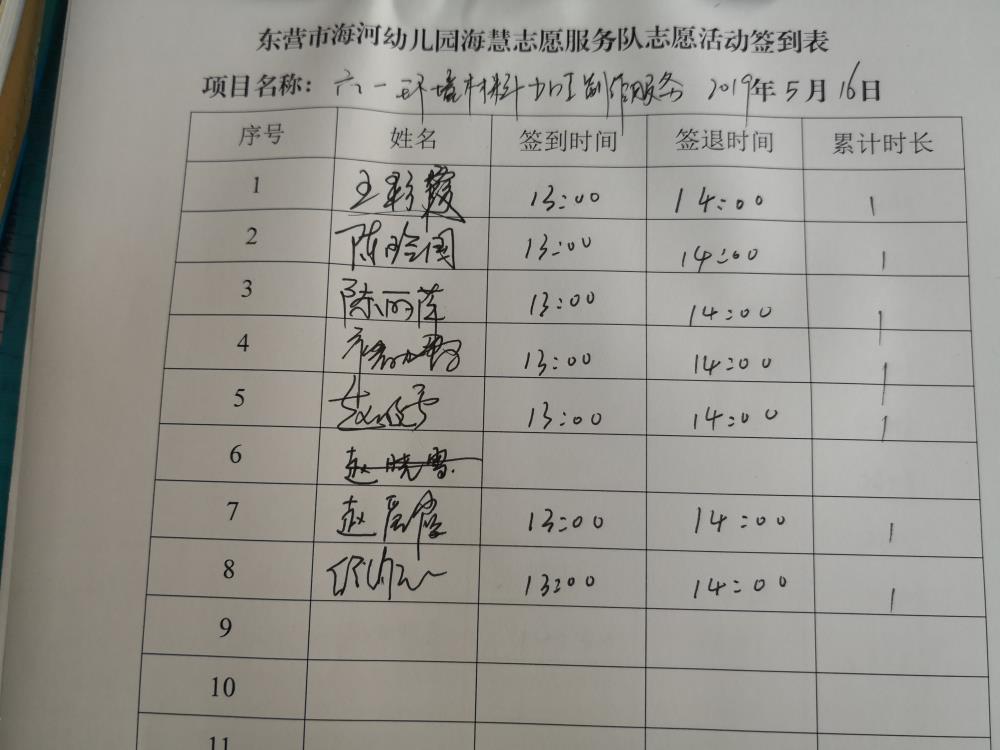 东营市海河幼儿园海慧志愿服务队志愿活动签到表
项目名称：六一环境材料加工制作服务 2019年5月16日
序号 姓名 签到时间 签退时间 累计时长
1 王彩霞 13:00 14:00 1
2 陈 13:00 14:00 1
3 陈丽萍 13:00 14:00 1
4 13:00 14:00 1
5 赵 13:00 14:00 1
6 赵晓雪
7 赵 13:00 14:00 1
8 13:00 14:00 1
9
10
11